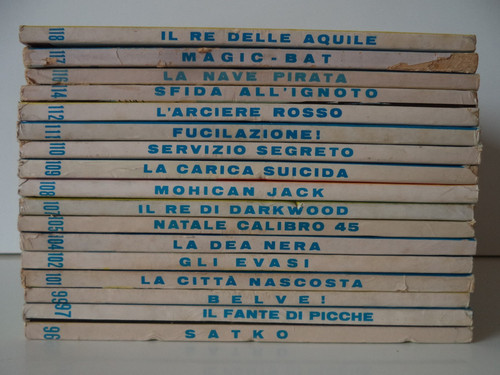 118 IL RE DELLE AQUILE
117 MAGIC-BAT
116 LA NAVE PIRATA
114 SFIDA ALL'IGNOTO
112 L'ARCIERE ROSSO
111 FUCILAZIONE!
110 SERVIZIO SEGRETO
109 LA CARICA SUICIDA
108 MOHICAN JACK
107 IL RE DI DARKWOOD
105 NATALE CALIBRO 45
104 LA DEA NERA
102 GLI EVASI
101 LA CITTÀ NASCOSTA
99 BELVE!
97 IL FANTE DI PICCHE
96 SATKO